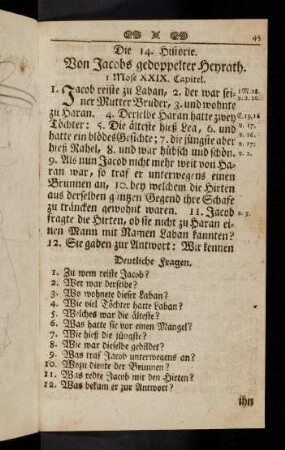 45
Die 14. Historie.
Von Jacobs gedoppelter Heyrath.
1 Mose XXIX. Capitel.
1. Jacob reiste zu Laban, 2. der war sei-
ner Mutter Bruder, 3. und wohnte
zu Haran. 4. Derselbe Haran hatte zwey
Töchter: 5. Die älteste hieß Lea, 6. und
hatte ein blödes Gesichte; 7. die jüngste aber
hieß Rahel, 8. und war hübsch und schön.
9. Als nun Jacob nicht mehr weit von Ha-
ran war, so traf er unterwegens einen
Brunnen an, 10. bey welchem die Hirten
aus derselben ganzen Gegend ihre Schafe
zu träncken gewohnt waren. 11. Jacob
fragte die Hirten, ob sie nicht zu Haran ei-
nen Mann mit Namen Laban kannten?
12. Sie gaben zur Antwort: Wir kennen
v. 17.
v. 16.
v. 17.
v. 2.
v. 5.
Deutliche Fragen.
1. Zu wem reiste Jacob?
2. Wer war derselbe?
3. Wo wohnete dieser Laban?
4. Wie viel Töchter hatte Laban?
5. Welches war die älteste?
6. Was hatte sie vor einen Mangel?
7. Wie hieß die jüngste?
8. Wie war dieselbe gebildet?
9. Was traf Jacob unterwegens an?
10. Wozu diente der Brunnen?
11. Was redte Jacob mit den Hirten?
12. Was bekam er zur Antwort?
ihn